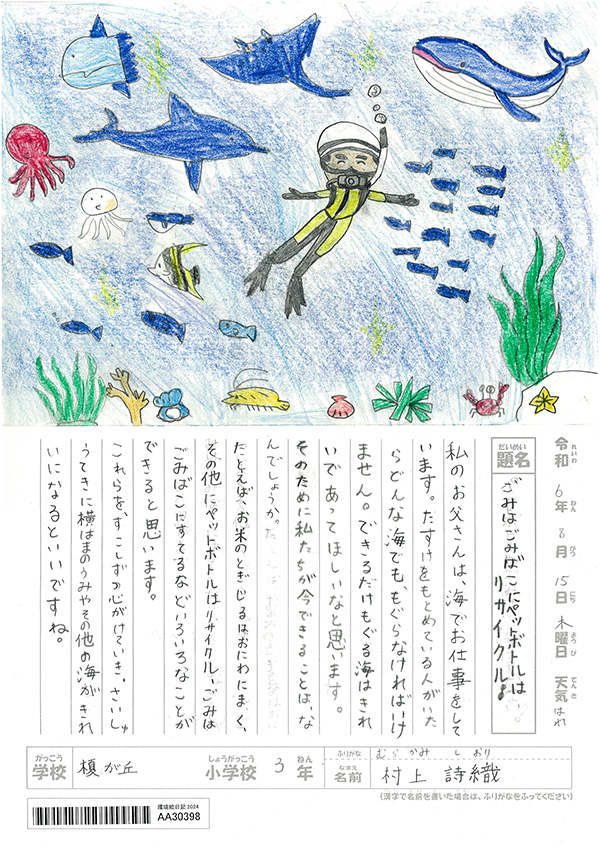 令和 6年 8月 15日 木曜日 天気 はれ
れいわ ねん がつ にち ようび てんき
だいめい
題名
ごみはごみばこにペットボトルは
リサイクル!
私のお父さんは、海でお仕事をして
います。たすけをもとめている人がいた
らどんな海でも、もぐらなければいけ
ません。できるだけもぐる海はきれ
いであってほしいなと思います。
そのために私たちが今できることは、な
んでしょうか。
たとえば、お米のとぎじるはおにわにまく、
その他にペットボトルはリサイクル、ごみは
ごみばこにすてるなどいろいろなことが
できると思います。
これらを、すこしずつ心がけていき、さいしゅ
うてきに横はまのうみやその他の海がきれ
いになるといいですね。
がっこう しょうがっこう ねん
学校 榎が丘 小学校 3年
ふりがな むらかみ しおり
なまえ
名前 村上 詩織
(漢字で名前を書いた場合は、ふりがなをふってください)
環境絵日記 2024
AA30398